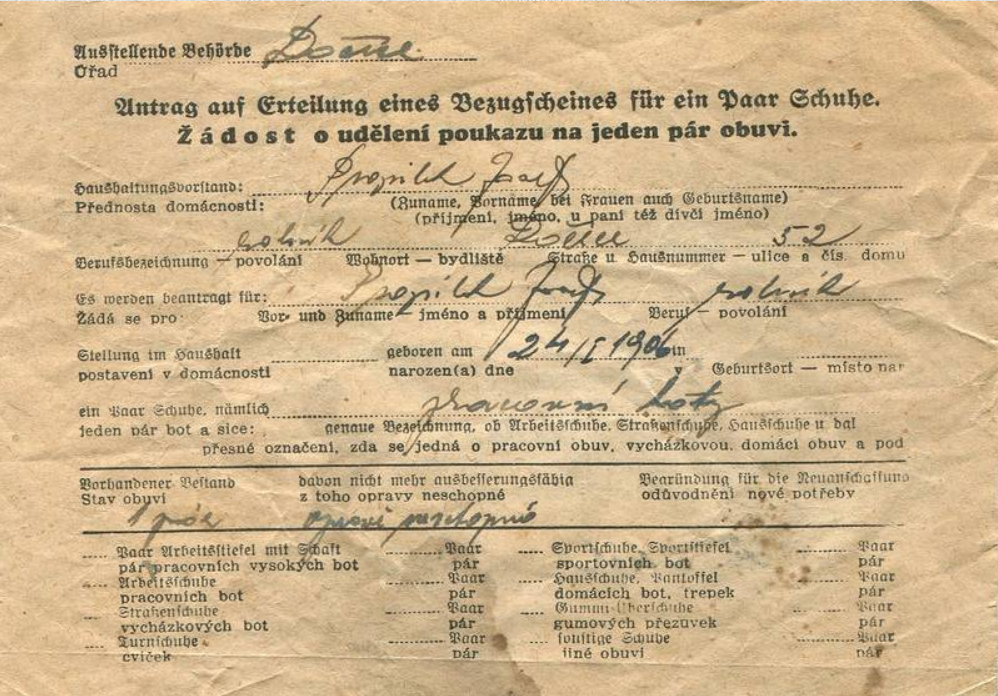 Ausstellende Behörde
Úřad
Antrag auf Erteilung eines Bezugscheines für ein Paar Schuhe.
Žádost o udělení poukazu na jeden pár obuvi.
Haushaltungsvorstand: Josef
Přednosta domácnosti: (Zuname, Vorname, bei Frauen auch Geburtsname)
(příjmení, jméno, u paní též dívčí jméno)
rolník 52
Berufsbezeichnung — povolání Wohnort — bydliště Straße u. Hausnummer — ulice a čís. domu
Es werden beantragt für: Josef rolník
Žádá se pro: Vor- und Zuname — jméno a příjmení Beruf — povolání
Stellung im Haushalt geboren am 24/I 1906 in
postavení v domácnosti narozen(a) dne v Geburtsort — místo nar
ein Paar Schuhe, nämlich pracovní boty
jeden pár bot a sice: genaue Bezeichnung, ob Arbeitsschuhe, Straßenschuhe, Hausschuhe u dal
přesné označení, zda se jedná o pracovní obuv, vycházkovou, domácí obuv a pod
Vorhandener Bestand davon nicht mehr ausbesserungsfähig Begründung für die Neuanschaffung
Stav obuvi z toho opravy neschopné odůvodnění nové potřeby
1 pár neschopné
Paar Arbeitsstiefel mit Schaft Paar Sportschuhe, Sportstiefel Paar
pár pracovních vysokých bot pár sportovních bot pár
Arbeitsschuhe Paar Hausschuhe, Pantoffel Paar
pracovních bot pár domácích bot, trepek pár
Straßenschuhe Paar Gummi-Überschuhe Paar
vycházkových bot pár gumových přezuvek pár
Turnschuhe Paar sonstige Schuhe Paar
cviček pár jiné obuvi pár